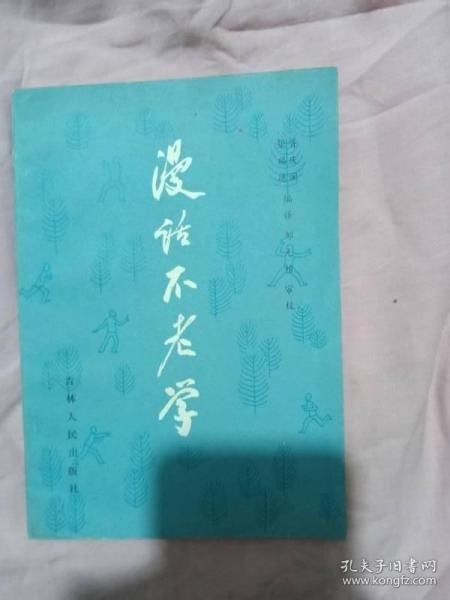 漫话不老学
编译
审校
吉林人民出版社
孔夫子旧书网
www.kongfz.com